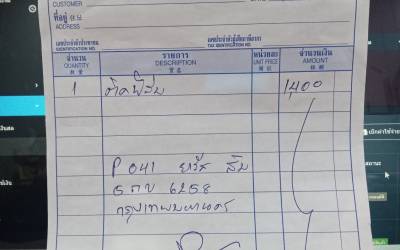 CUSTOMER
ที่อยู่
ADDRESS
เลขประจำตัวประชาชน
IDENTIFICATION NO.
เลขประจำตัวผู้เสียภาษีอากร
TAX IDENTIFICATION NO.
จำนวน รายการ หน่วยละ จำนวนเงิน
QUANTITY DESCRIPTION UNIT PRICE AMOUNT
1 ติดฟิล์ม 1,400
P 041 ยาริส สีม
5 กข 6258
กรุงเทพมหานคร